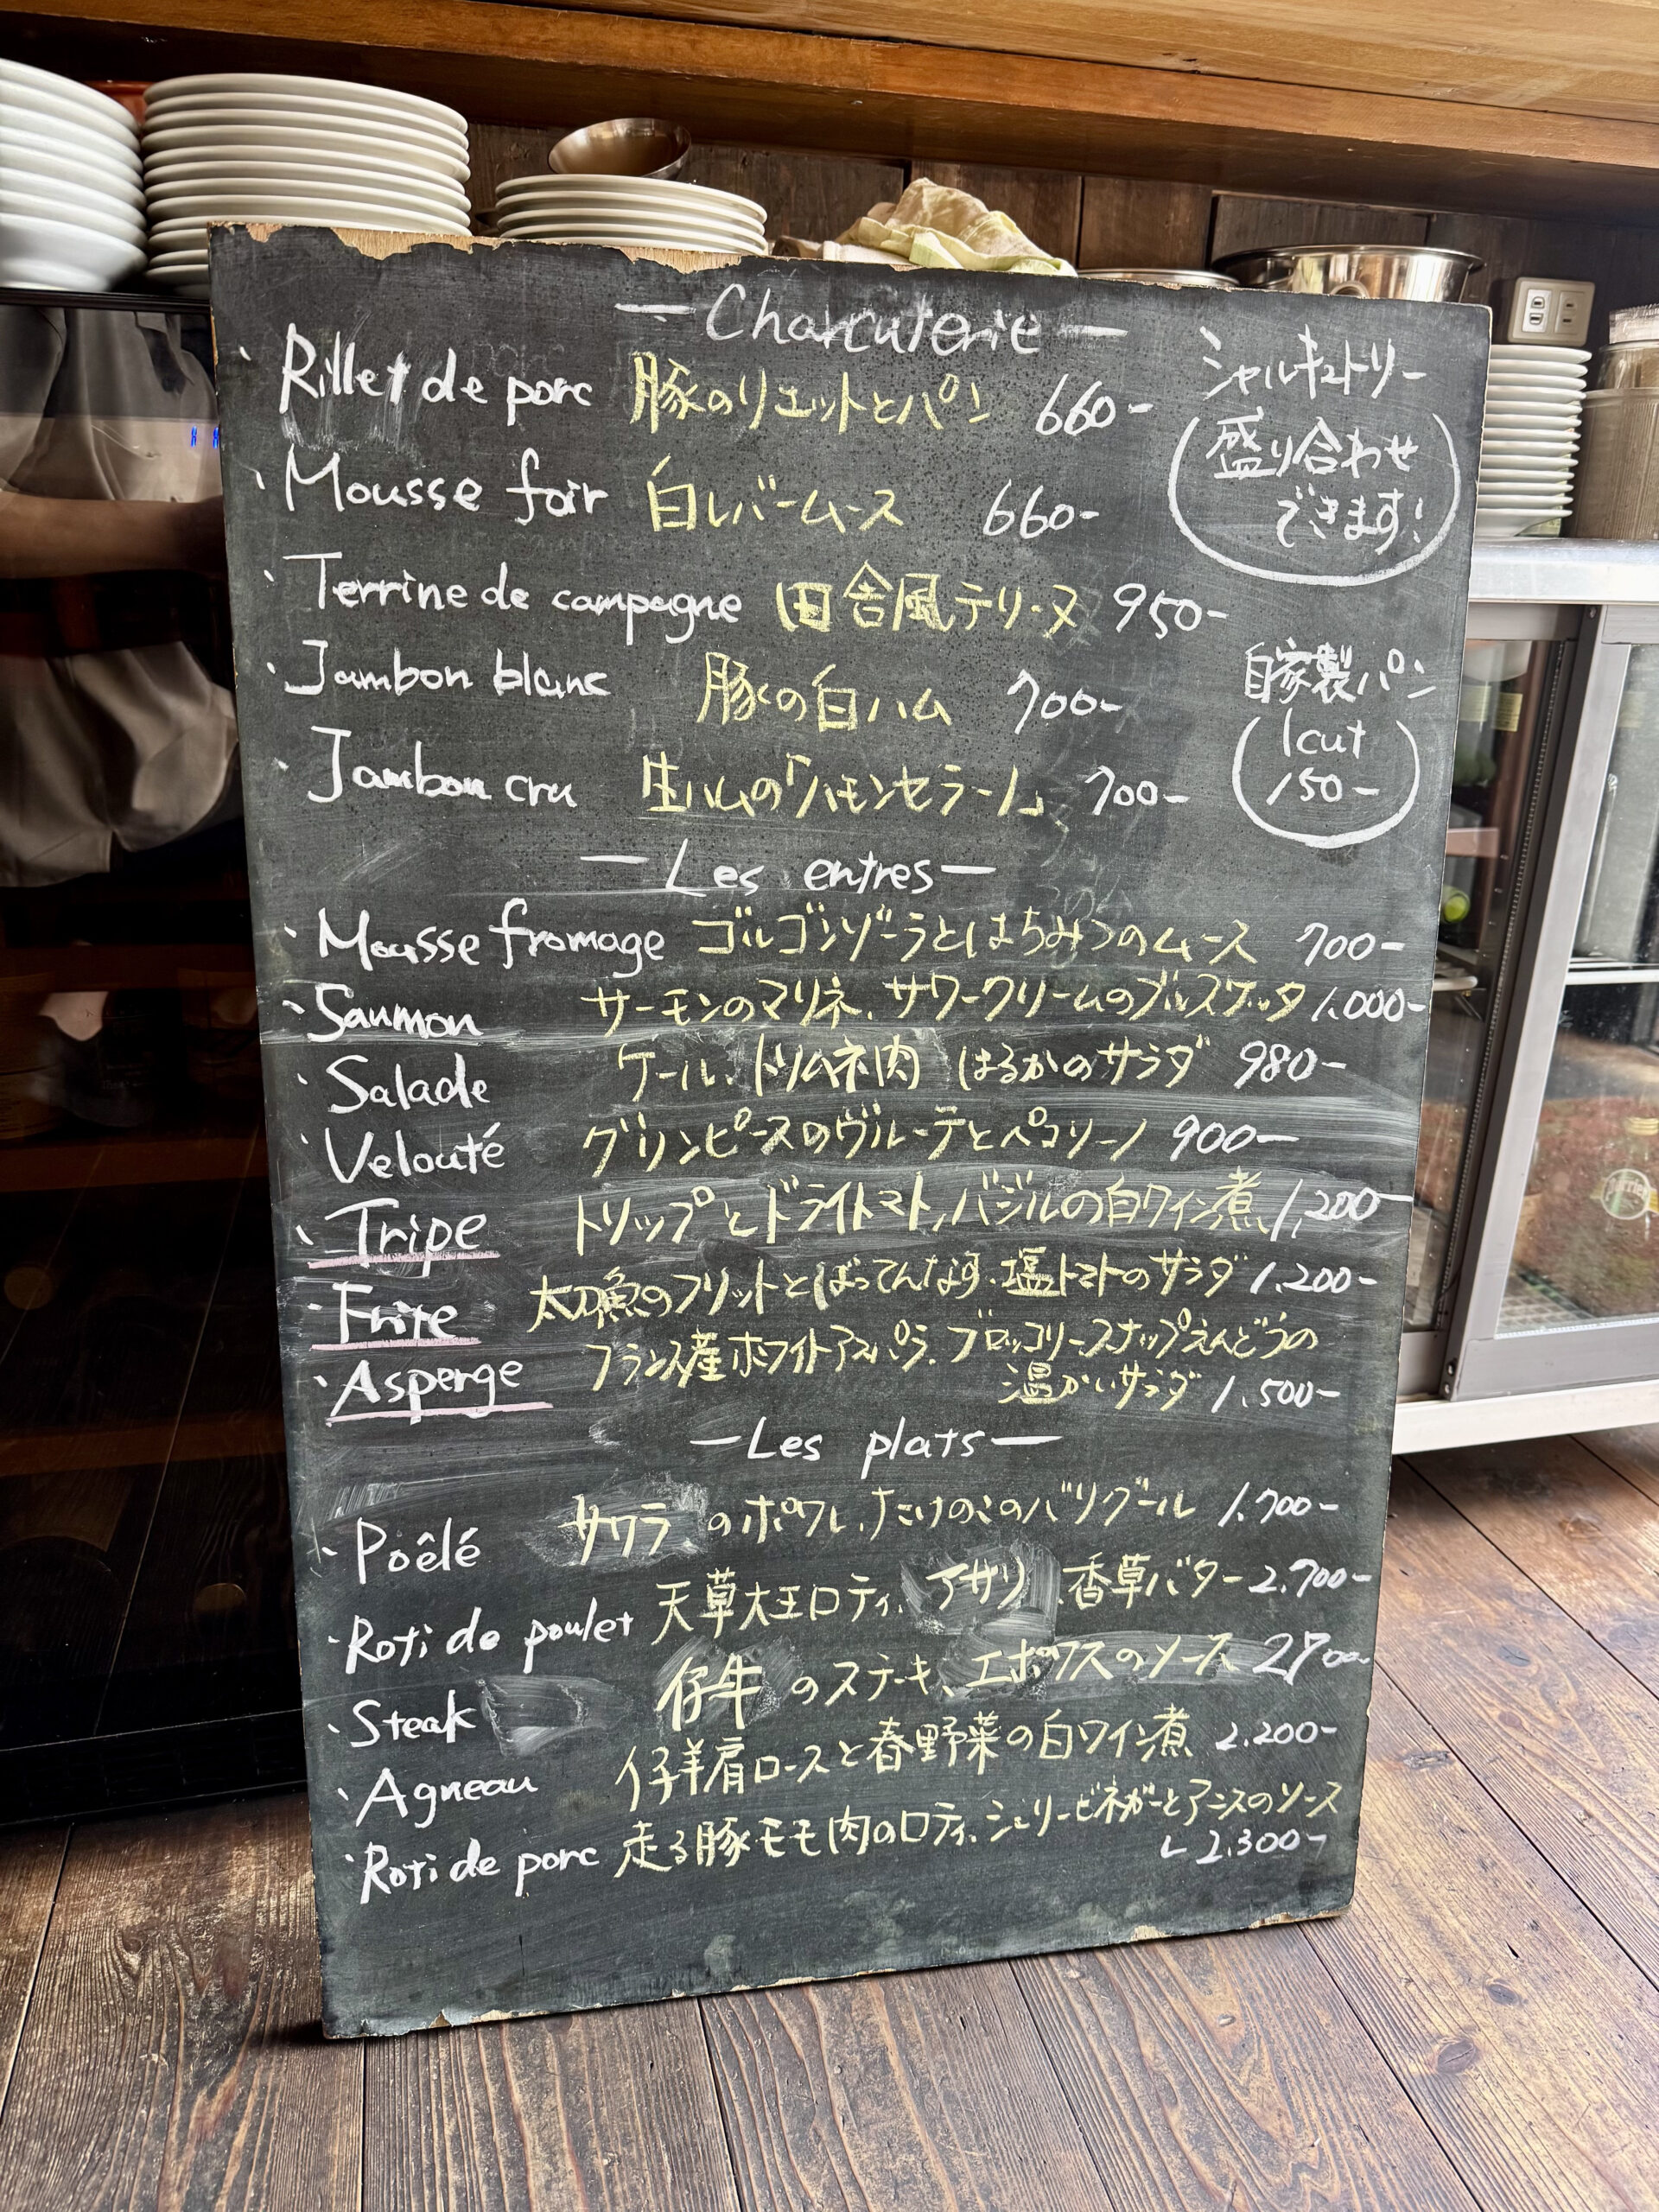 — Charcuterie —
・Rillet de porc 豚のリエットとパン 660-
・Mousse foir 白レバームース 660-
・Terrine de campagne 田舎風テリーヌ 950-
・Jambon blanc 豚の白ハム 700-
・Jambon cru 生ハムの「ハモンセラーノ」 700-
シャルキュトリー
盛り合わせ
できます!
自家製パン
1cut
150-
— Les entres —
・Mousse fromage ゴルゴンゾーラとはちみつのムース 700-
・Saumon サーモンのマリネ、サワークリームのブルスケッタ 1,000-
・Salade ケール、トリムネ肉 はるかのサラダ 980-
・Velouté グリンピースのヴルーテとペコリーノ 900-
・Tripe トリップとドライトマト,バジルの白ワイン煮 1,200-
・Frite 太刀魚のフリットとばってんなす、塩トマトのサラダ 1,200-
・Asperge フランス産ホワイトアスパラ、ブロッコリースナップえんどうの
温かいサラダ 1,500-
— Les plats —
・Poêlé サワラのポワレ、たけのこのバリグール 1,700-
・Roti de poulet 天草大王ロティ、アサリ、香草バター 2,700-
・Steak 仔牛のステーキ、エポワスのソース 2700-
・Agneau 仔羊肩ロースと春野菜の白ワイン煮 2,200-
・Roti de porc 走る豚モモ肉のロティ、シェリービネガーとアニスのソース
2,300-